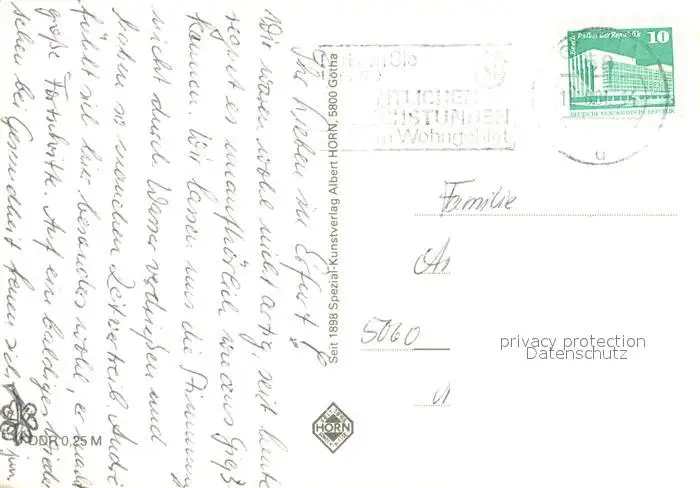 Ihr Lieben in Erfurt!
Wir waren wohl nicht artig, seit heute
regnet es unaufhörlich in
kennen. Wir lassen uns die Stimmung
nicht durch Wasser verdrießen und
haben so manchen Zeitvertreib. André
fühlt sich hier besonders wohl, er macht
große Fortschritte. Auf ein baldiges Wieder
sehen bei Gesundheit freuen sich
DDR 0,25 M
Seit 1898 Spezial-Kunstverlag Albert HORN, 5800 Gotha
HORN
Sie
TLICHEN
ISTUNGEN
Wohngebiet
Berlin Palast der Republik 10
DEUTSCHE DEMOKRATISCHE REPUBLIK
Familie
5060
privacy protection
Datenschutz